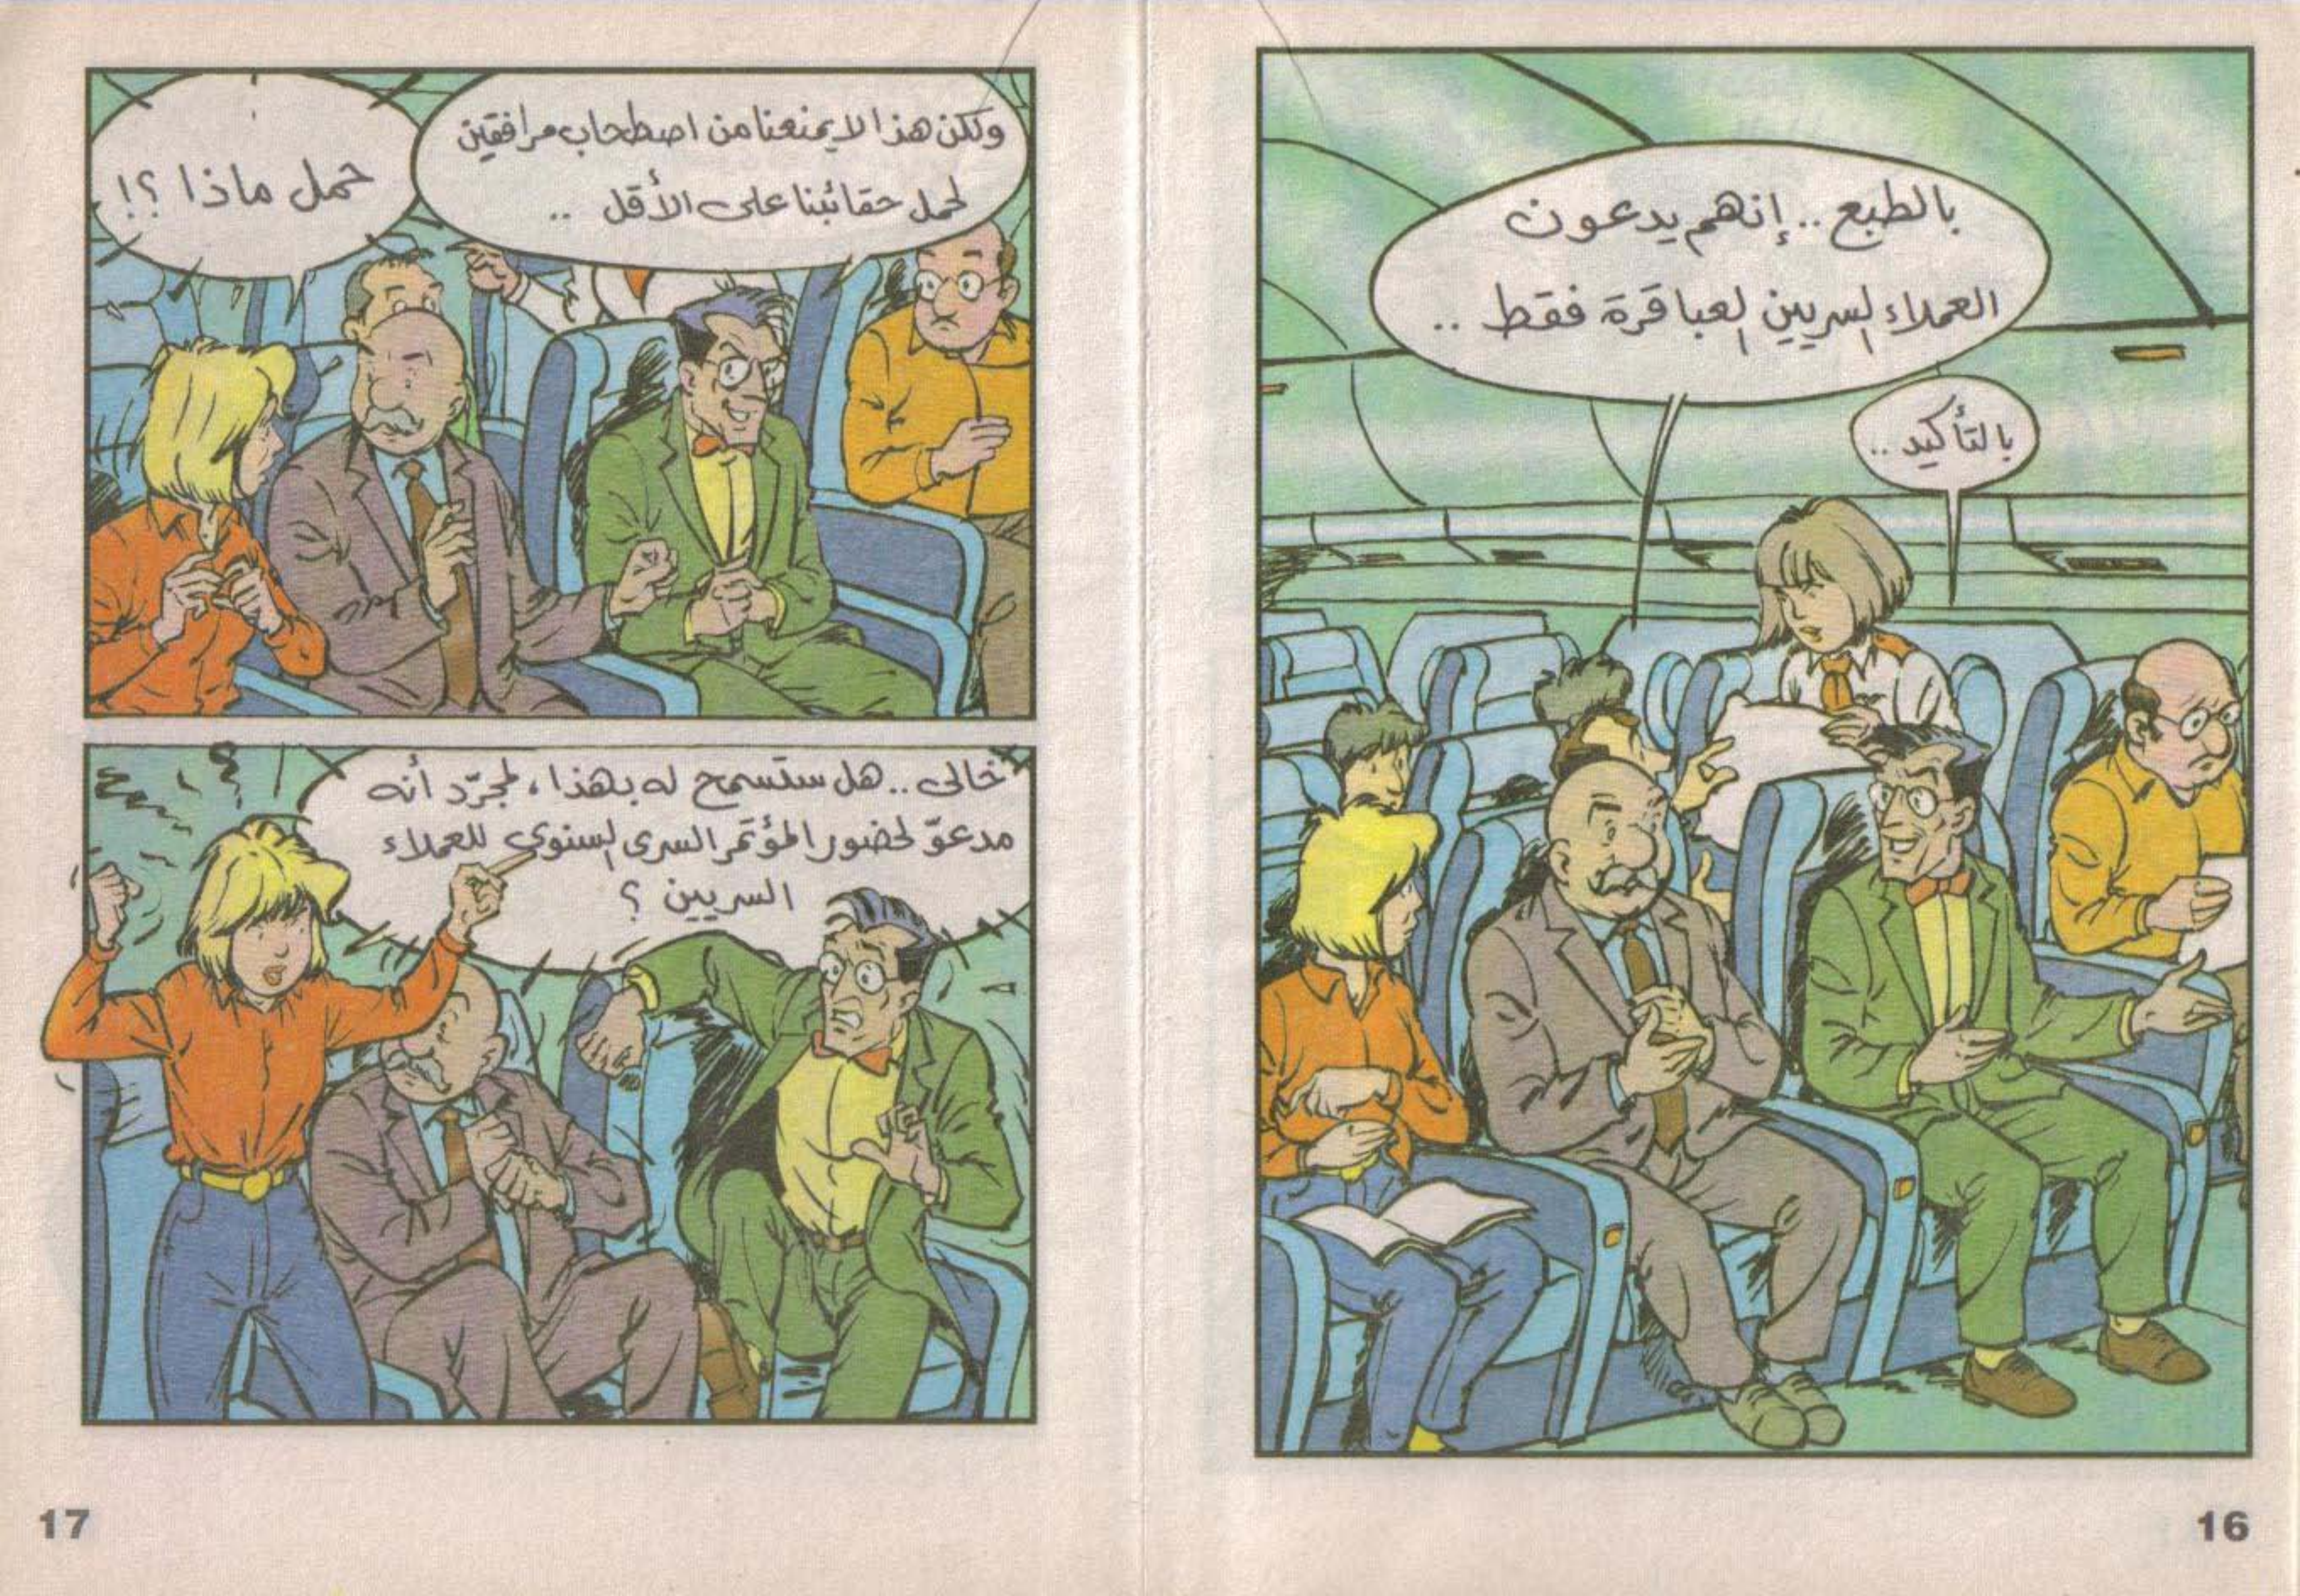 بالطبع .. إنهم يدعون
العملاء السريين العباقرة فقط ..
بالتأكيد ..
16
ولكن هذا لا يمنعنا من اصطحاب مرافقين
لحمل حقائبنا على الأقل ..
حمل ماذا ؟!
خالى .. هل ستسمح له بهذا ، لمجرّد أنه
مدعوّ لحضور المؤتمر السرى السنوى للعملاء
السريين ؟
17